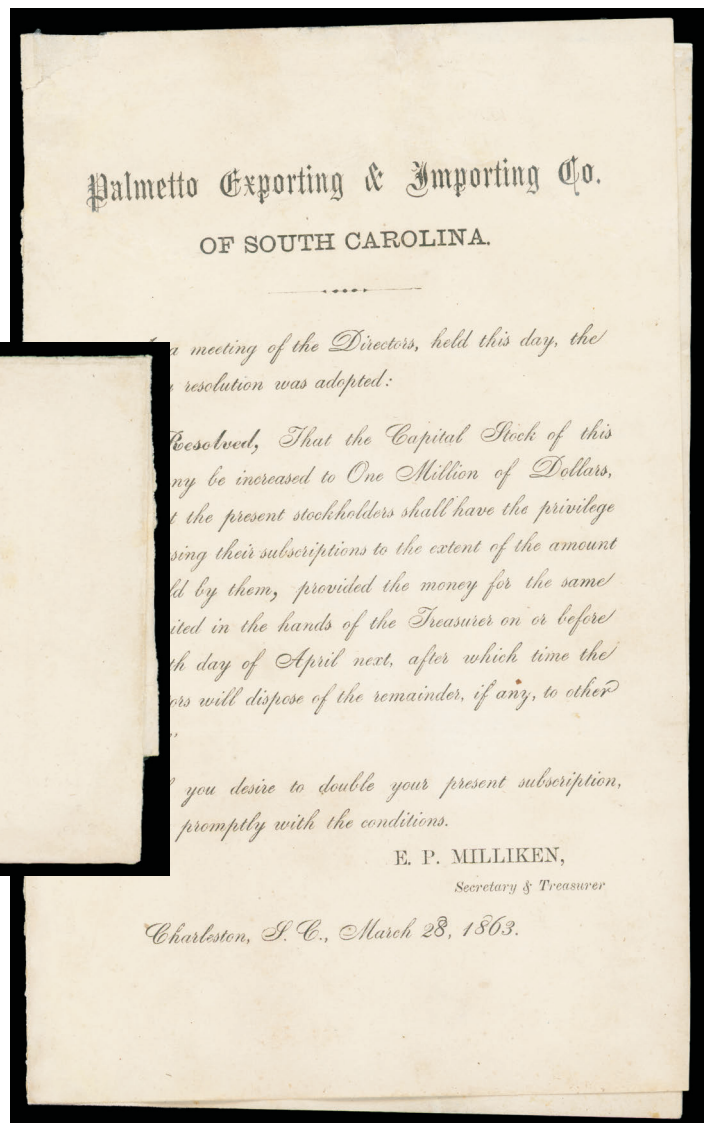 Palmetto Exporting & Importing Co.
OF SOUTH CAROLINA.
a meeting of the Directors, held this day, the
resolution was adopted:
Resolved, That the Capital Stock of this
ny be increased to One Million of Dollars,
t the present stockholders shall have the privilege
sing their subscriptions to the extent of the amount
ld by them, provided the money for the same
ited in the hands of the Treasurer on or before
th day of April next, after which time the
ors will dispose of the remainder, if any, to other
"
you desire to double your present subscription,
promptly with the conditions.
E. P. MILLIKEN,
Secretary & Treasurer
Charleston, S. C., March 28, 1863.